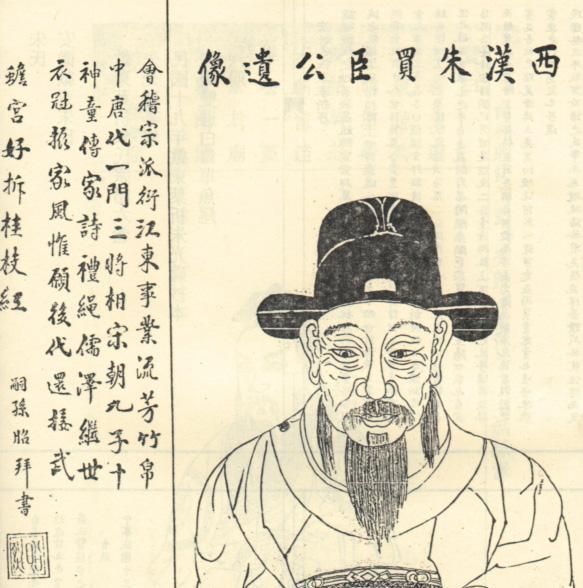 西漢朱買臣公遺像
會稽宗派衍江東事業流芳竹帛
中唐代一門三將相宋朝九子十
神童傳家詩禮繩儒澤繼世
衣冠振家風惟願後代還接武
蟾宮好折桂枝經
嗣孫昭拜書